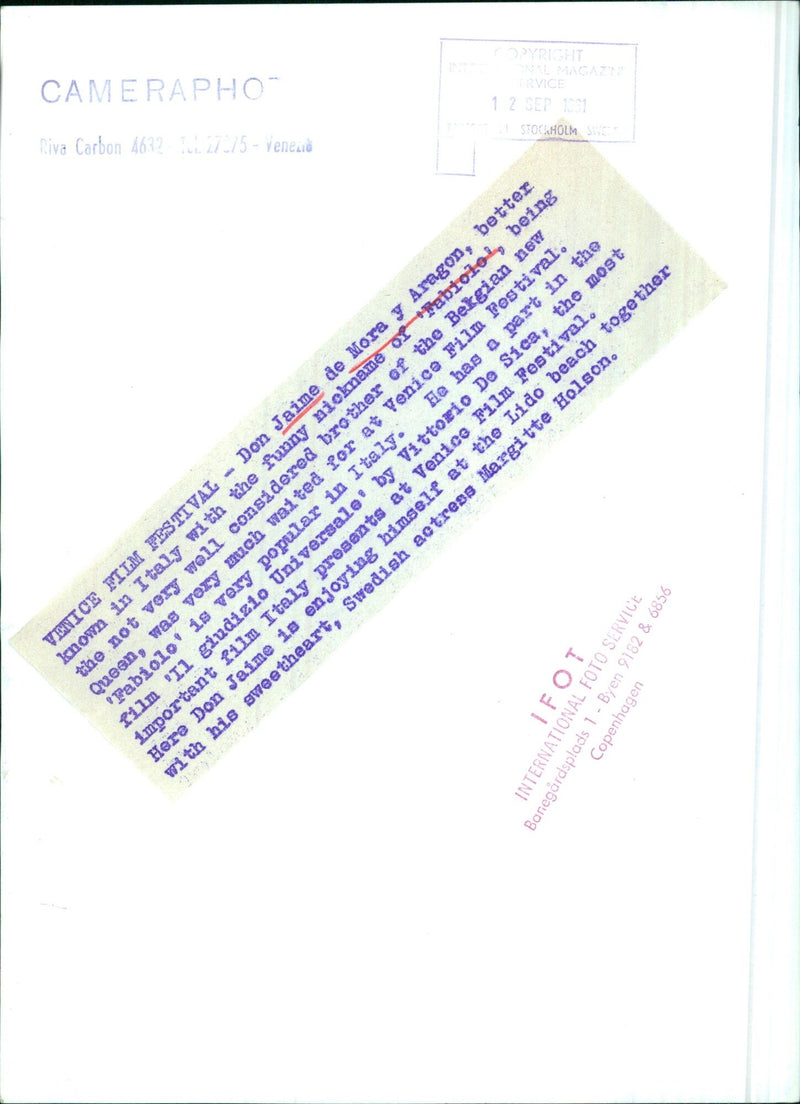 CAMERAPHOT
Riva Carbon 4632 - Tel. 27075 - Venezia
COPYRIGHT
INTERNATIONAL MAGAZINE
SERVICE
12 SEP 1961
STOCKHOLM SWEDEN
VENICE FILM FESTIVAL - Don Jaime de Mora y Aragon, better
known in Italy with the funny nickname of 'Fabiolo', being
the not very well considered brother of the Bekgian new
Queen, was very much waited for at Venice Film Festival.
'Fabiolo' is very popular in Italy. He has a part in the
film 'Il giudizio Universale' by Vittorio De Sica, the most
important film Italy presents at Venice Film Festival.
Here Don Jaime is enjoying himself at the Lido beach together
with his sweetheart, Swedish actress Margitte Holson.
IFOT
INTERNATIONAL FOTO SERVICE
Banegårdsplads 1 - Byen 9182 & 6856
Copenhagen